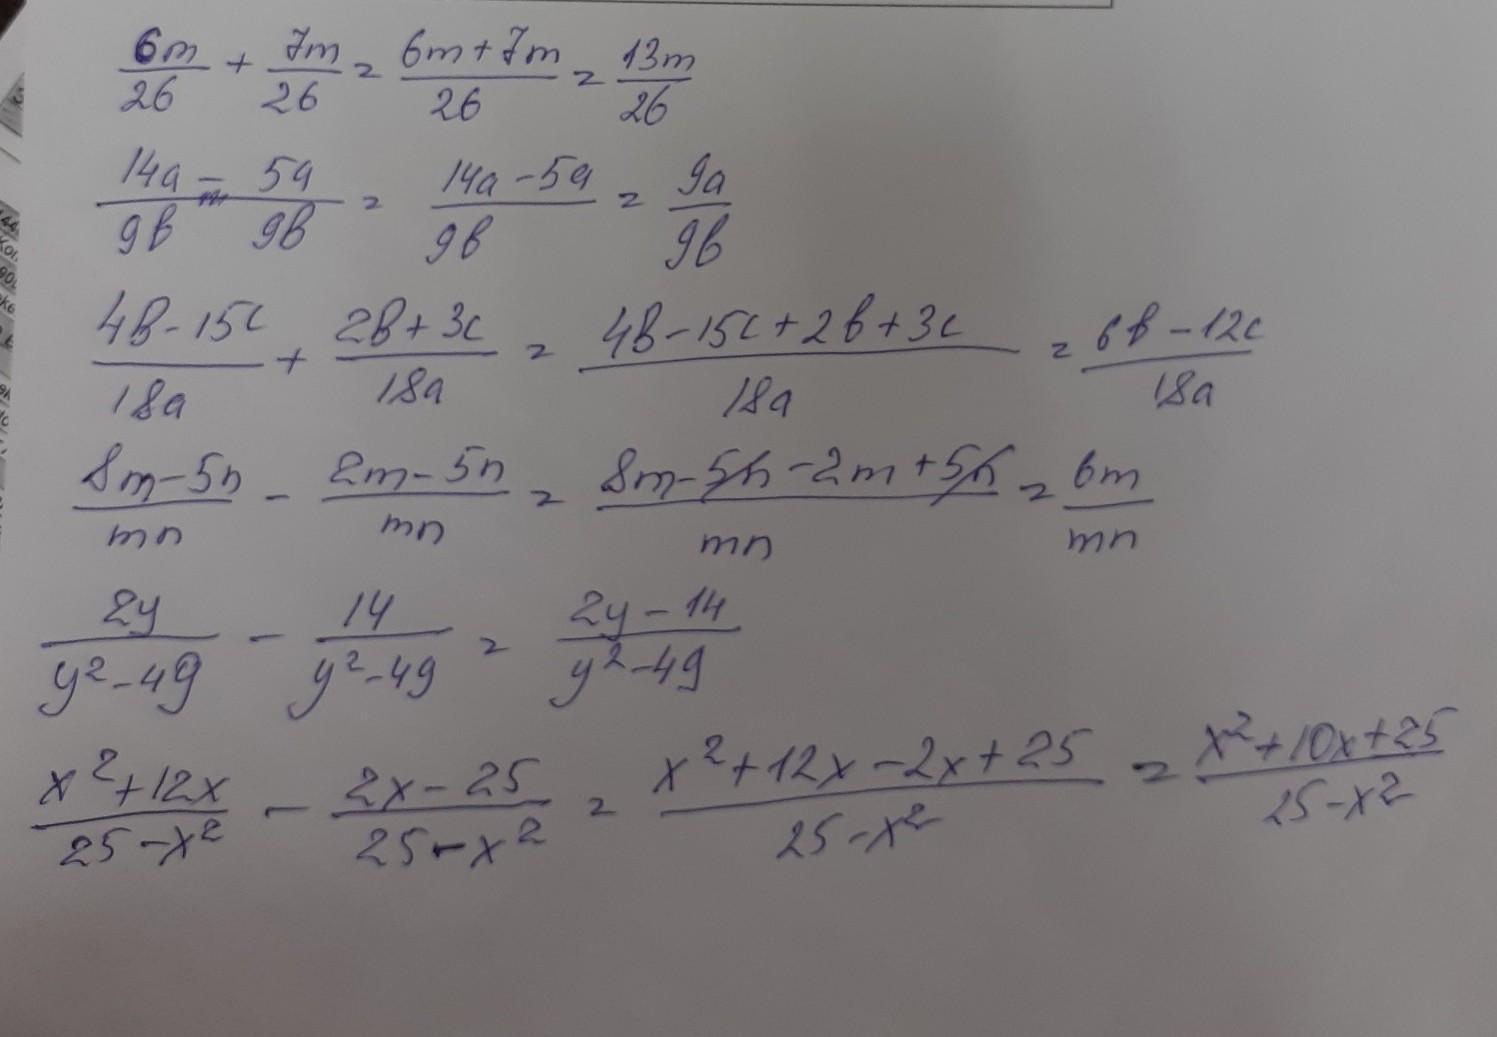 6m/26 + 7m/26 = 6m+7m/26 = 13m/26
14a/9b - 5a/9b = 14a-5a/9b = 9a/9b
4b-15c/18a + 2b+3c/18a = 4b-15c+2b+3c/18a = 6b-12c/18a
8m-5n/mn - 2m-5n/mn = 8m-5n-2m+5n/mn = 6m/mn
2y/y²-49 - 14/y²-49 = 2y-14/y²-49
x²+12x/25-x² - 2x-25/25-x² = x²+12x-2x+25/25-x² = x²+10x+25/25-x²